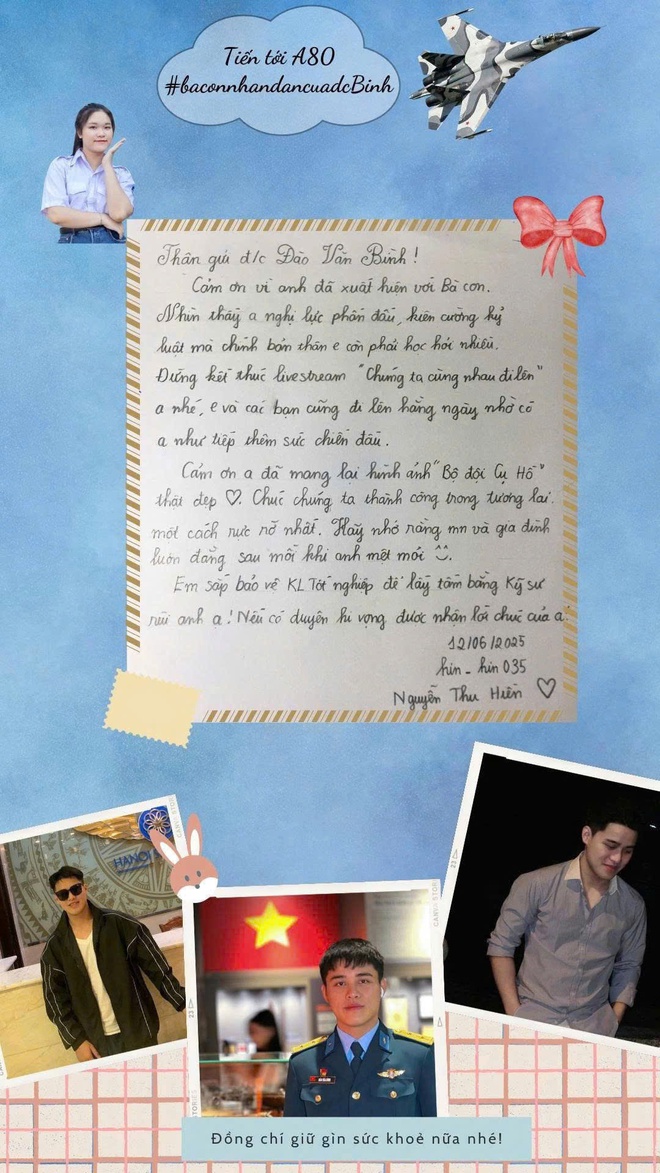 Tiến tới A80
#baconnhandancuadcBinh
Thân gửi đ/c Đào Văn Bình!
Cảm ơn vì anh đã xuất hiện với Bà con.
Nhìn thấy a nghị lực phấn đấu, kiên cường kỷ
luật mà chính bản thân e còn phải học hỏi nhiều.
Đừng kết thúc livestream "Chúng ta cùng nhau đi lên"
a nhé, e và các bạn cũng đi lên hằng ngày nhờ có
a như tiếp thêm sức chiến đấu.
Cảm ơn a đã mang lại hình ảnh "Bộ đội Cụ Hồ"
thật đẹp ♡. Chúc chúng ta thành công trong tương lai
một cách rực rỡ nhất. Hãy nhớ rằng mn và gia đình
luôn đằng sau mỗi khi anh mệt mỏi ^^.
Em sắp bảo vệ KL Tốt nghiệp để lấy tấm bằng Kỹ sư
rùi anh ạ! Nếu có duyên hi vọng được nhận lời chúc của a!
12/06/2025
hin_hin 035
Nguyễn Thu Hiền ♡
HANOI
CANVA STOR
23
CANVA STOR
23
23
Đồng chí giữ gìn sức khoẻ nữa nhé!